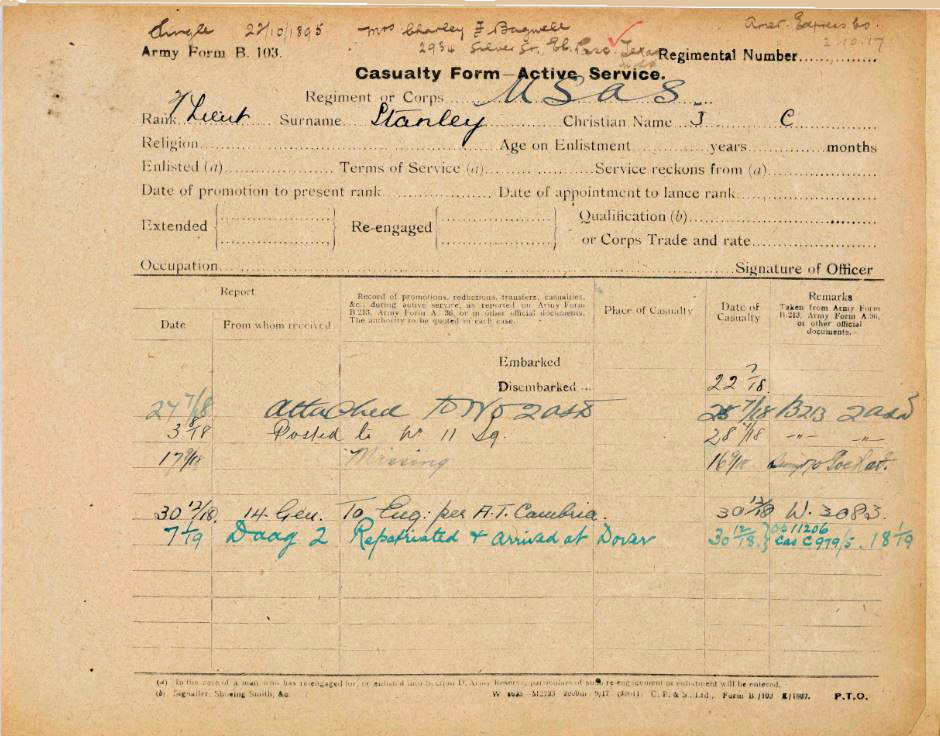 Single 22/10/1895 Mrs Charley F Bagwell Amer. Express Co.
Army Form B. 103. 2934 Silver St. El Paso Texas 2-10-17
Regimental Number
Casualty Form—Active Service.
Regiment or Corps U S A S
Rank 2/Lieut Surname Stanley Christian Name J C
Religion Age on Enlistment years months
Enlisted (a) Terms of Service (a) Service reckons from (a)
Date of promotion to present rank Date of appointment to lance rank
Extended Re-engaged Qualification (b)
or Corps Trade and rate
Occupation Signature of Officer
Report Record of promotions, reductions, transfers, casualties, &c., during active service, as reported on Army Form B.213, Army Form A. 36, or in other official documents. The authority to be quoted in each case. Place of Casualty Date of Casualty Remarks Taken from Army Form B.213, Army Form A.36, or other official documents.
Date From whom received
Embarked
Disembarked 22 7/18.
27 7/18 Attached to No 2 ASD 7/18 B213 2 ASD
3 8/18 Posted to No 11 Sq. 28 7/18 -"- -"-
17 9/18 Missing 16 9/18
30 12/18. 14 Gen. To Eng: per A.T. Cambria. 30 12/18 W. 3083
7 1/19 Daag 2 Repatriated & arrived at Dover 30 12/18. } 11206 Cas C979/5. 18 1/19
(a) In the case of a man who has re-engaged for, or enlisted into Section D, Army Reserve, particulars of such re-engagement or enlistment will be entered.
(b) Signaller, Shoeing Smith, &c. C. P. & S., Ltd., Form B./103 P.T.O.